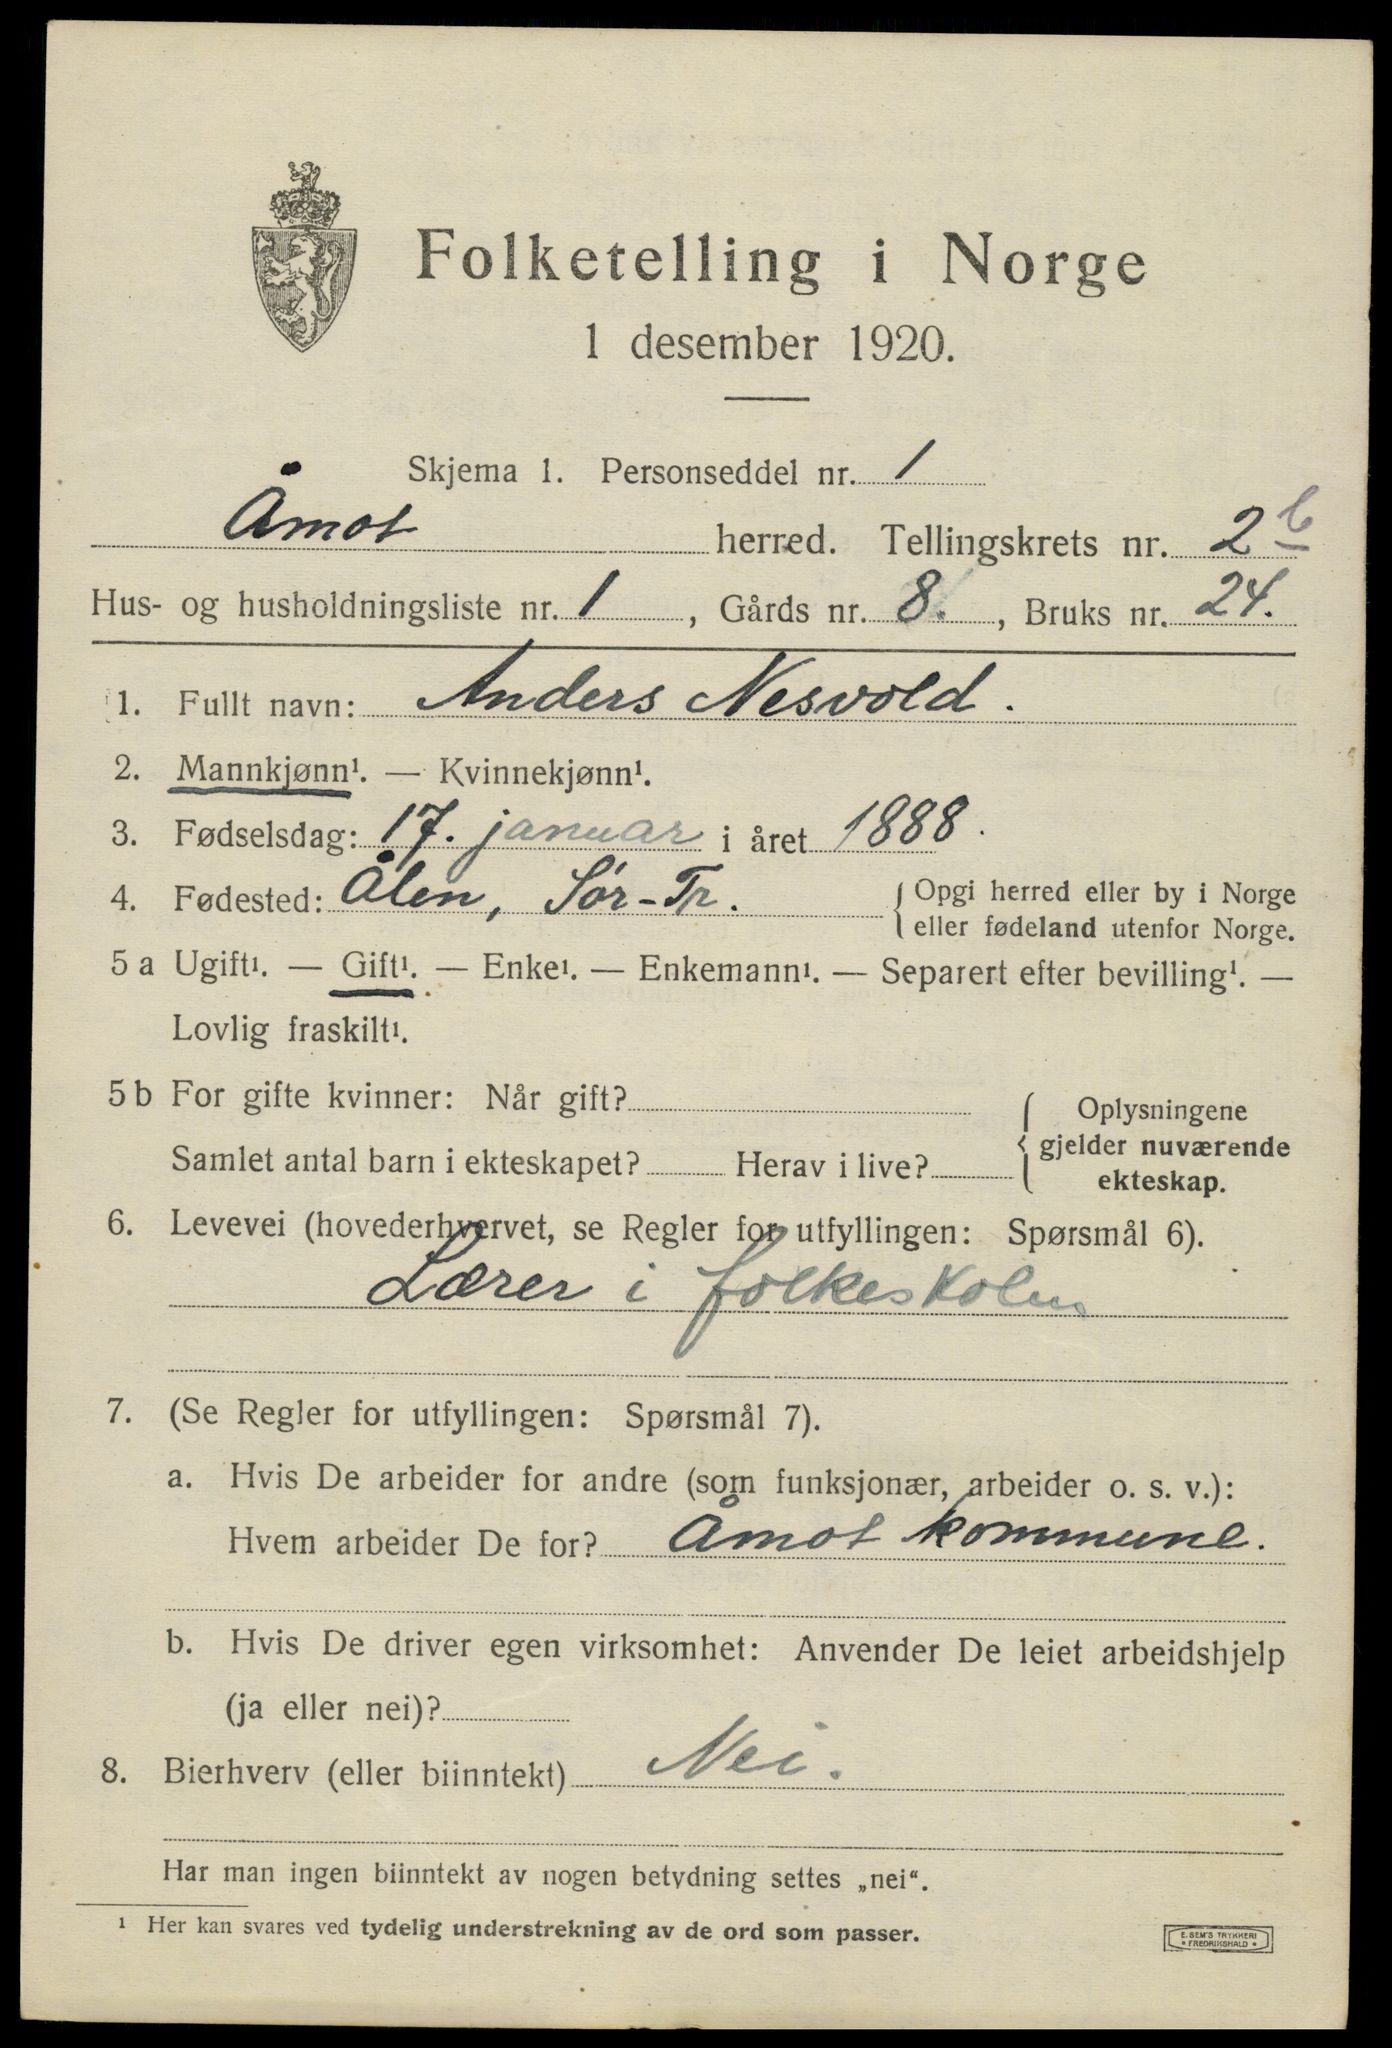 Folketelling i Norge
1 desember 1920.
Skjema 1. Personseddel nr. 1
Åmot herred. Tellingskrets nr. 2 b
Hus- og husholdningsliste nr. 1, Gårds nr. 8., Bruks nr. 24.
1. Fullt navn: Anders Nesvold.
2. Mannkjønn¹. — Kvinnekjønn¹.
3. Fødselsdag: 17. januar i året 1888.
4. Fødested: Ålen, Sør-Tr. { Opgi herred eller by i Norge
eller fødeland utenfor Norge.
5 a Ugift¹. — Gift¹. — Enke¹. — Enkemann¹. — Separert efter bevilling¹. —
Lovlig fraskilt¹.
5 b For gifte kvinner: Når gift? { Oplysningene
gjelder nuværende
Samlet antal barn i ekteskapet? Herav i live?
ekteskap.
6. Levevei (hovederhvervet, se Regler for utfyllingen: Spørsmål 6).
Lærer i folkeskolen
7. (Se Regler for utfyllingen: Spørsmål 7).
a. Hvis De arbeider for andre (som funksjonær, arbeider o. s. v.):
Hvem arbeider De for? Åmot kommune.
b. Hvis De driver egen virksomhet: Anvender De leiet arbeidshjelp
(ja eller nei)?
8. Bierhverv (eller biinntekt) Nei.
Har man ingen biinntekt av nogen betydning settes „nei“.
¹ Her kan svares ved tydelig understrekning av de ord som passer.
E. SEM'S TRYKKERI
• FREDRIKSHALD •